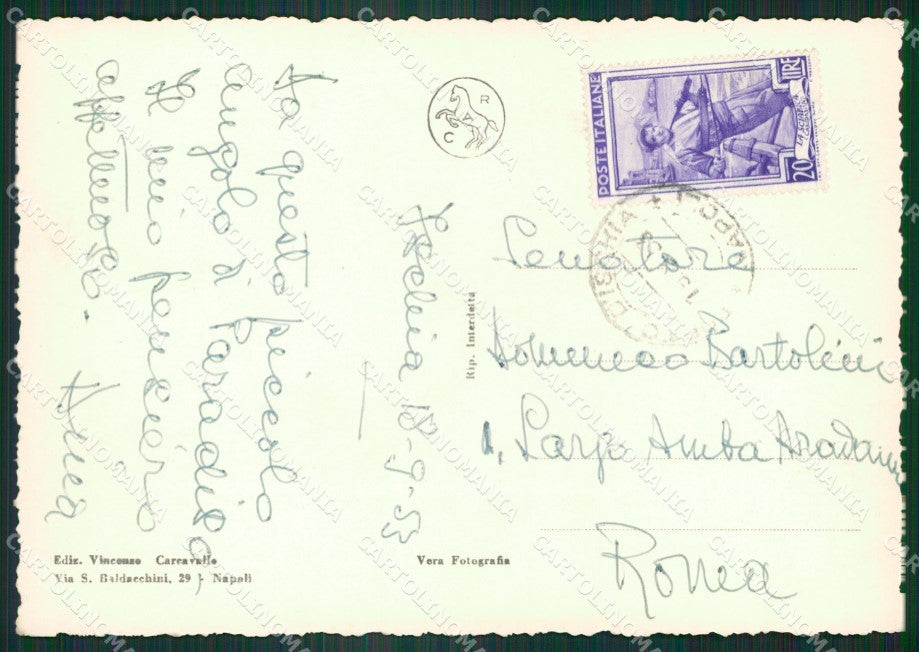 Ischia 18-9-53
Da questo piccolo
angolo di paradiso
il mio pensiero
affettuoso.
Anna
R
C
POSTE ITALIANE
LIRE
20
ISCHIA
Senatore
Domenico Bartolini
1, Largo Amba Aradam
Roma
Rip. Interdetta
Ediz. Vincenzo Carcavallo
Via S. Baldacchini, 29 - Napoli
Vera Fotografia
CARTOLINOMANIA